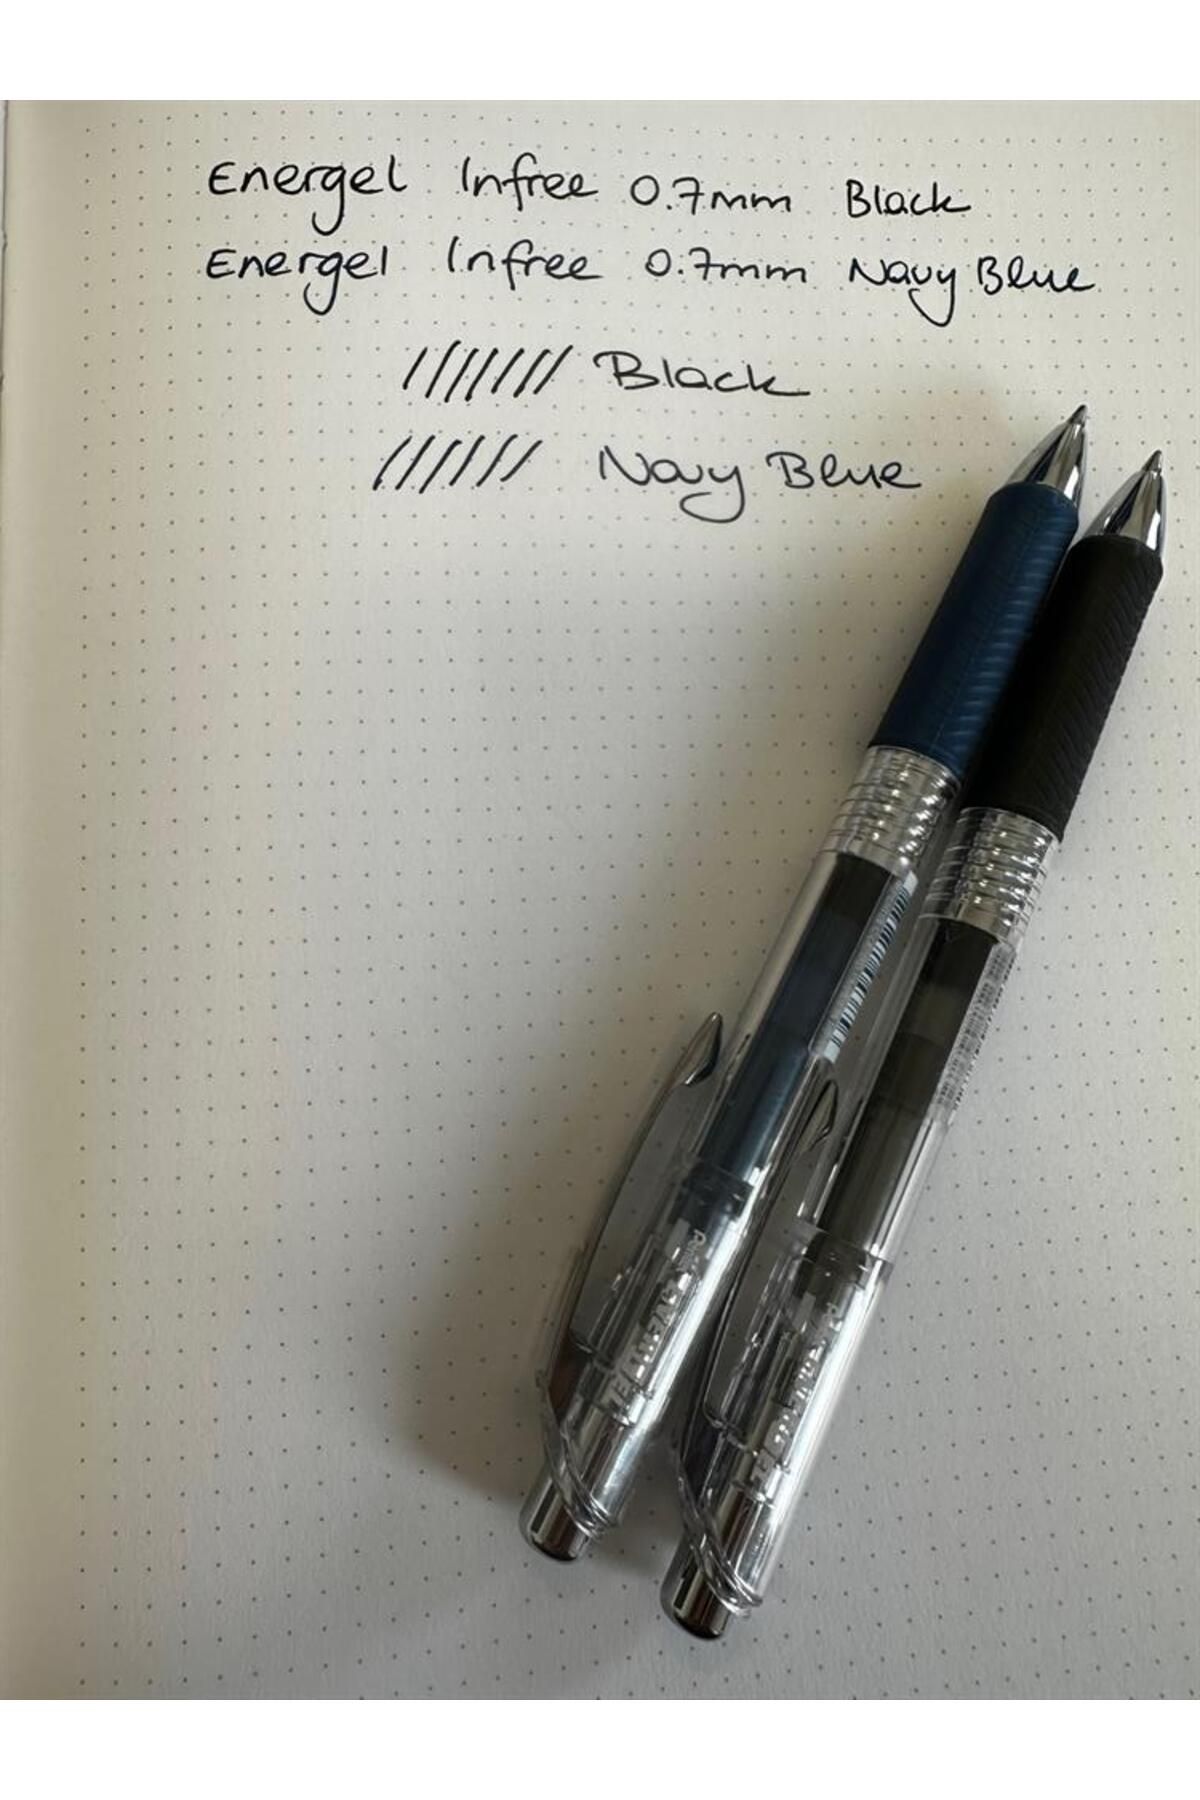 Energel Infree 0.7mm Black
Energel Infree 0.7mm Navy Blue
Black
Navy Blue